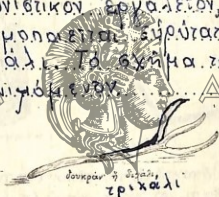 ονιστικόν ἐργαλεῖον,
μοποιεῖται εὐρύτατ
άλι... Τό σχῆμα τ
μενον
δουκράν ἤ διχάλι
τρικάλι